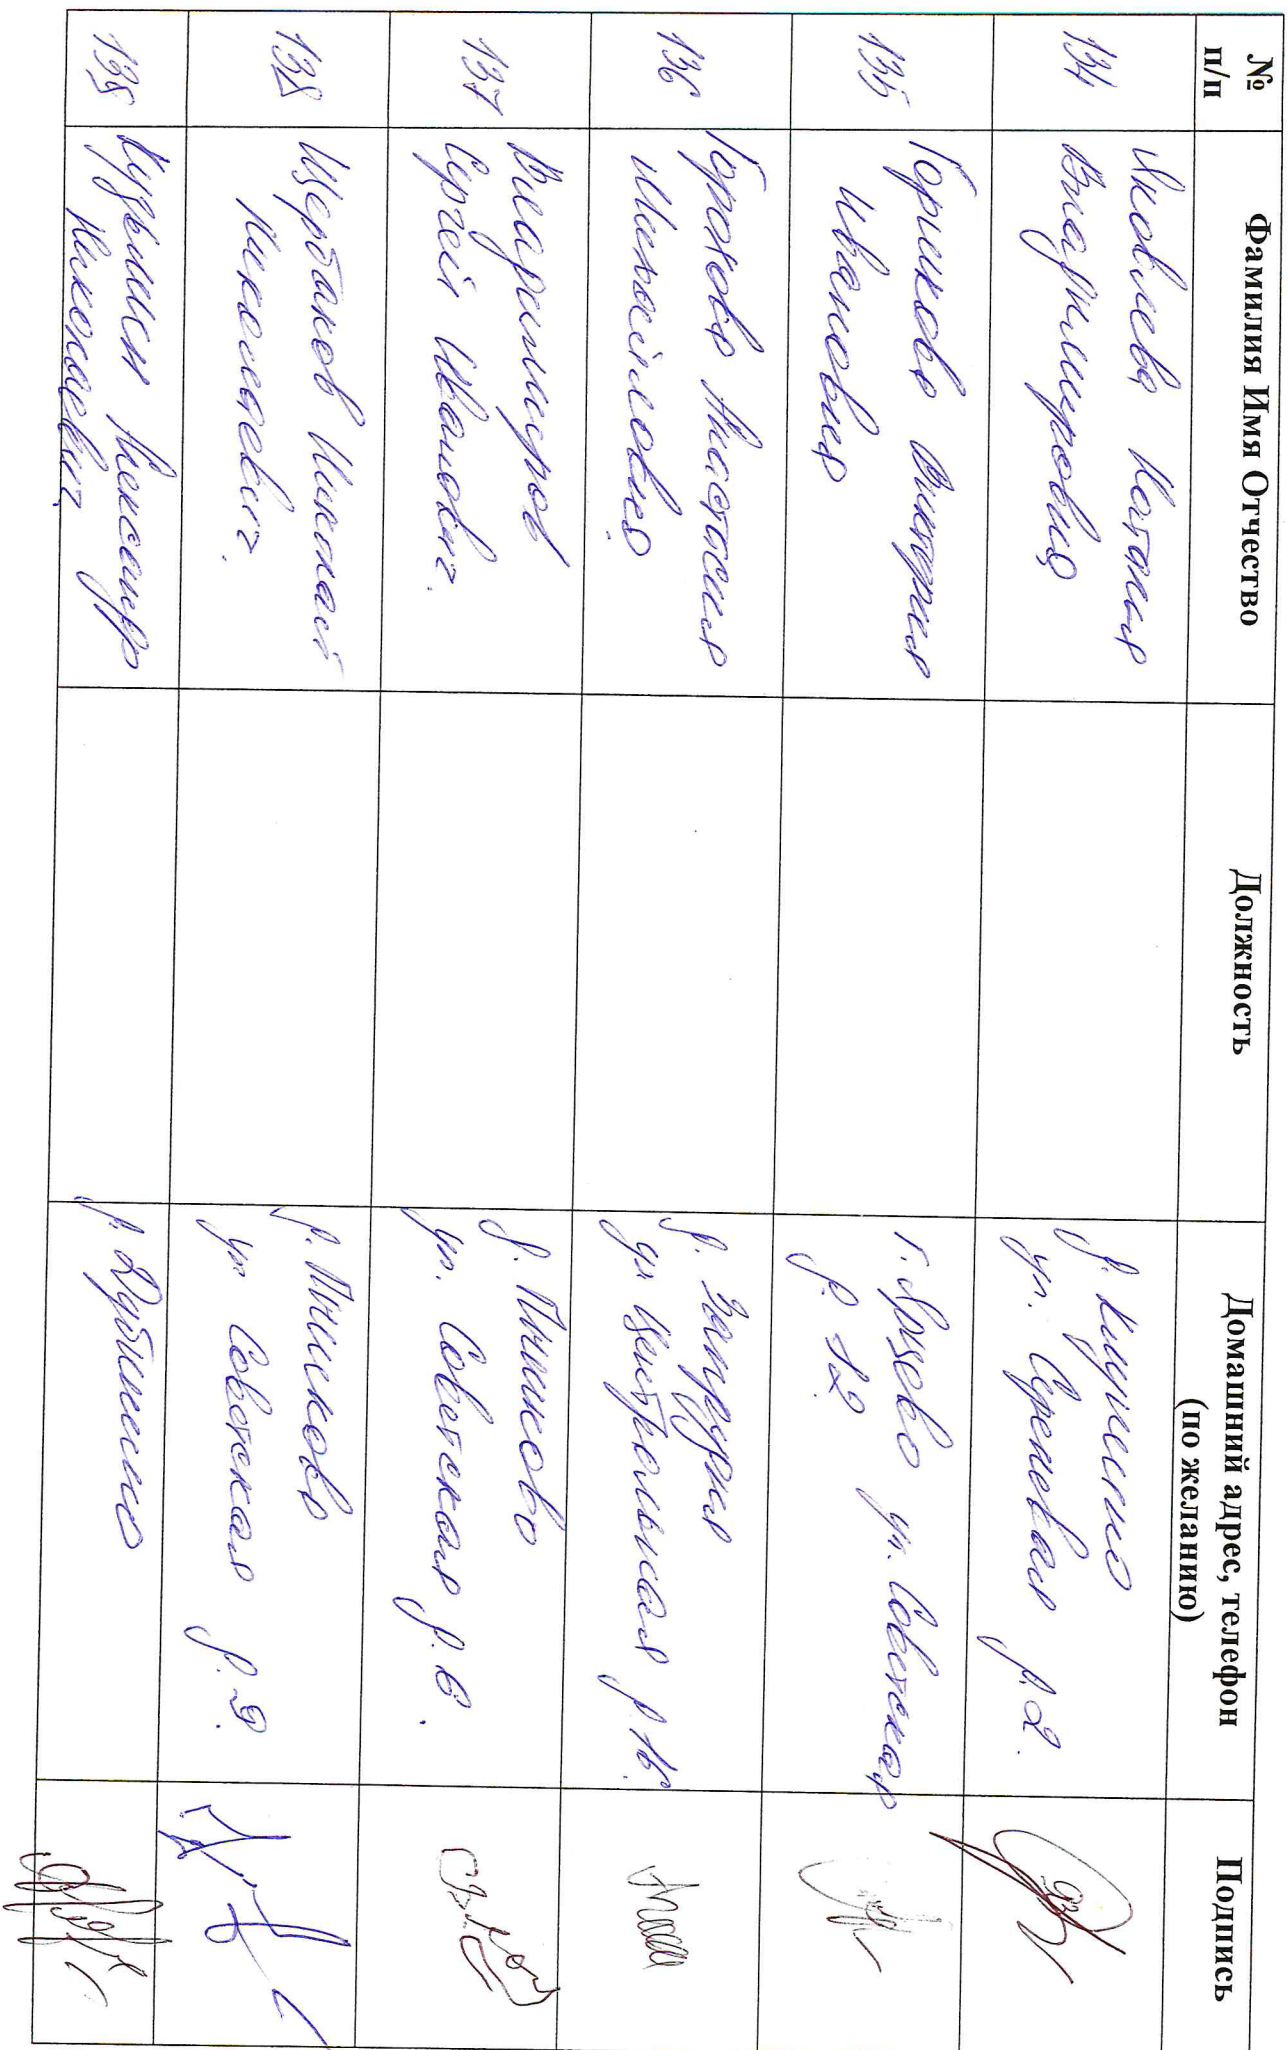 № п/п
Фамилия Имя Отчество
Должность
Домашний адрес, телефон (по желанию)
Подпись
134
Яковлева Наталья
Владимировна
ул. д. 2.
135
Горшкова Виктория
Ивановна
ул. Советская
д. 12
136
Горохова Анастасия
Михайловна
д. Запрудня
ул Центральная д. 16.
137
Владимиров
Сергей Иванович.
д. Пышково
ул. Советская д. 6.
138
Щербаков Николай
Николаевич.
д. Пышково
ул Советская д. 9.
139
Кузьмин Александр
Николаевич
д. Дубинино